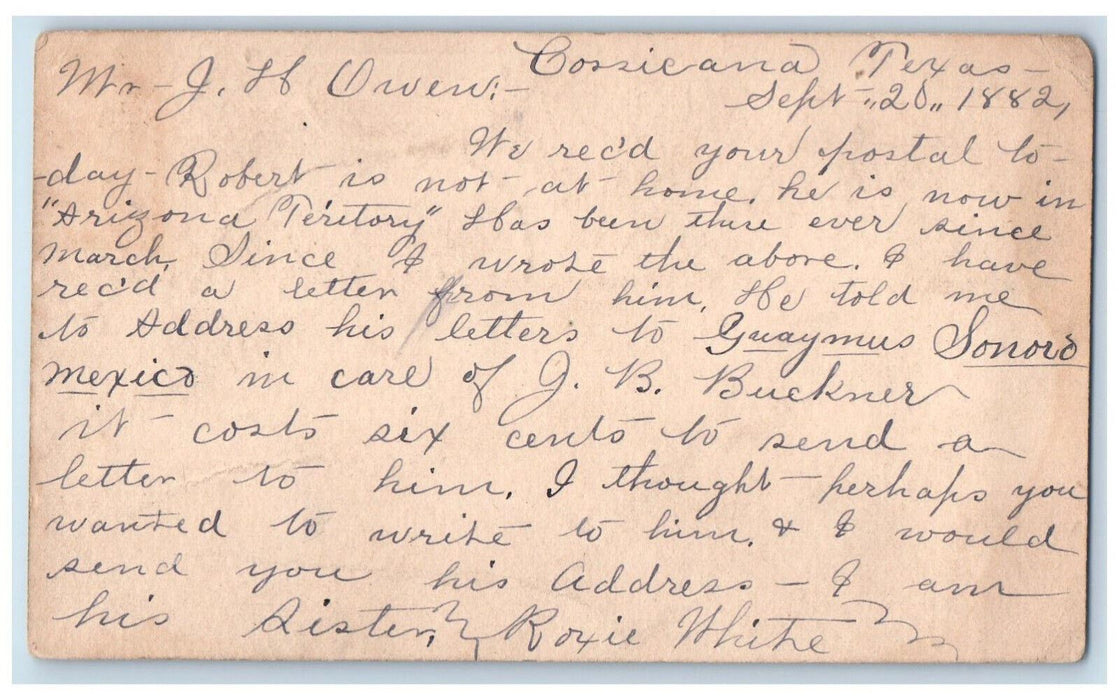 Cossicana Texas-
Mr- J. H Owen:-
Sept-"20" 1882,
We rec'd your postal to-
-day- Robert is not at home. he is now in
"Arizona Teritory" Has been there ever since
March, Since I wrote the above. I have
rec'd a letter from him, He told me
to Address his letters to Guaymus Sonoro
Mexico in care of J. B. Buckner
it costs six cents to send a
letter to him. I thought perhaps you
wanted to write to him. & I would
send you his Address - I am
his Sister, Roxie White